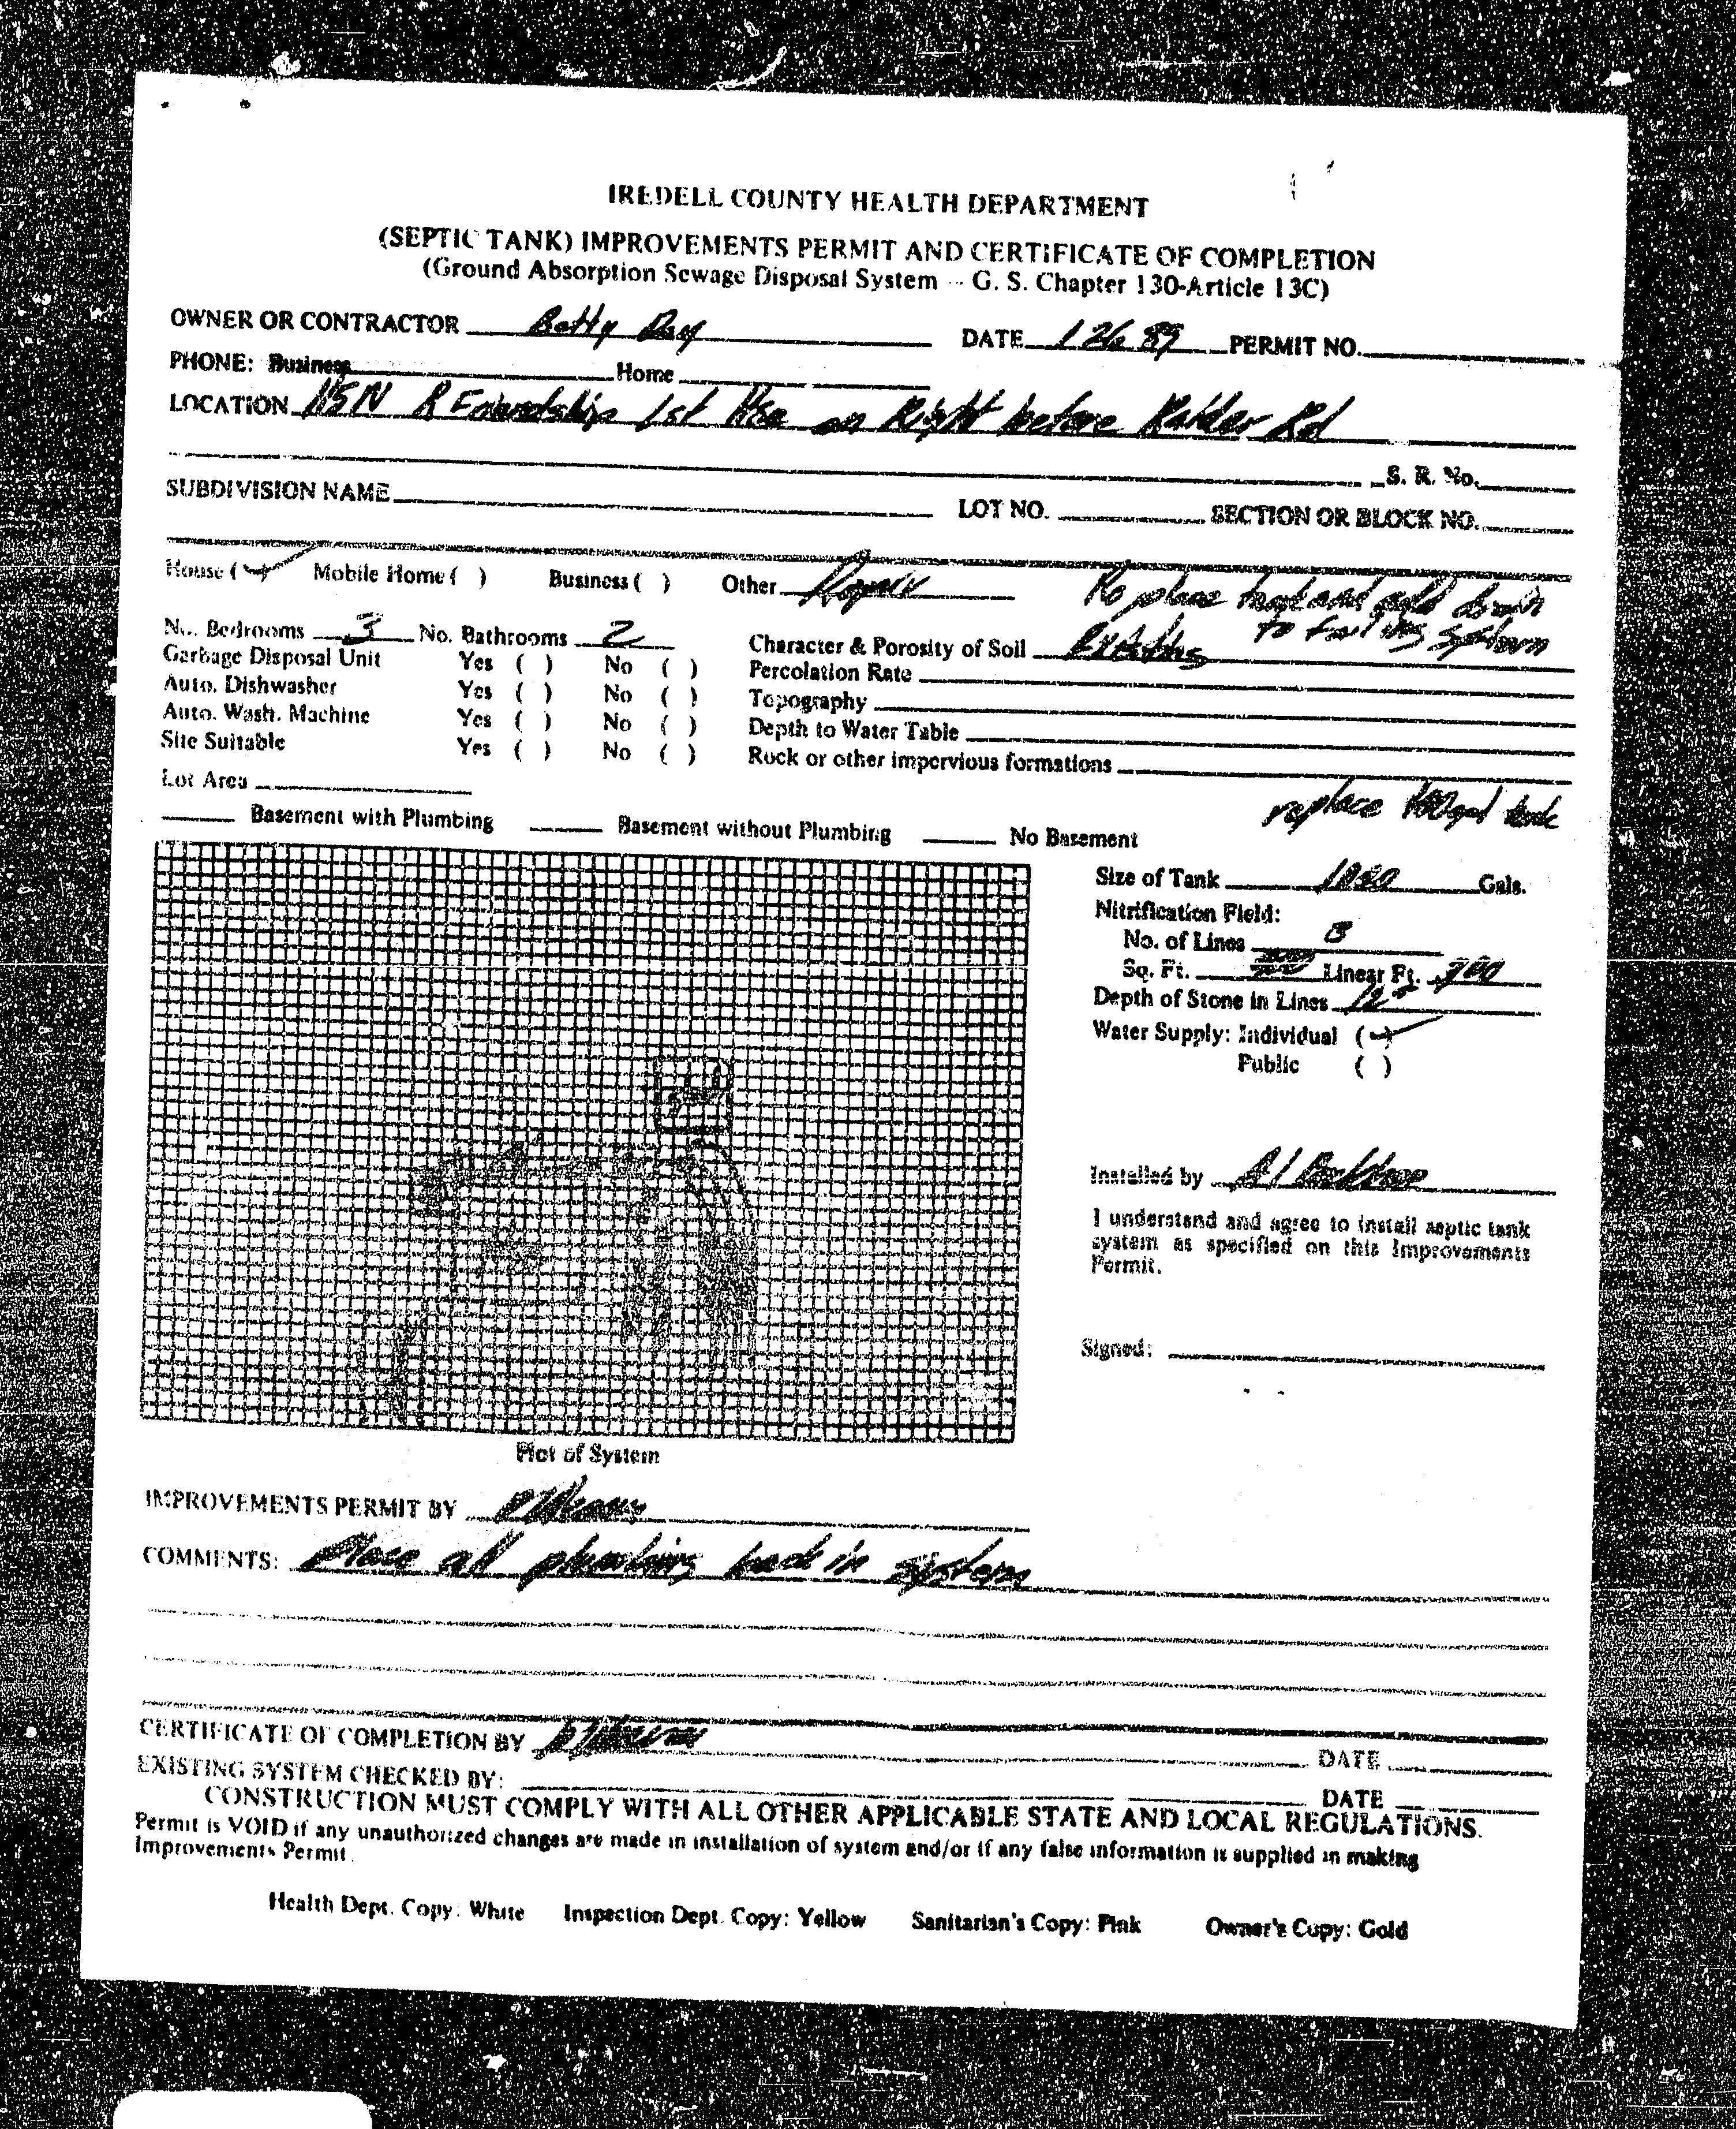 IREDELL COUNTY HEALTH DEPARTMENT
(SEPTIC TANK) IMPROVEMENTS PERMIT AND CERTIFICATE OF COMPLETION
(Ground Absorption Sewage Disposal System -- G. S. Chapter 130-Article 13C)
OWNER OR CONTRACTOR Betty Day DATE 1 26 89 PERMIT NO.
PHONE: Business Home
LOCATION 115N R Friendship 1st Hse on Right before Rd
S. R. No.
SUBDIVISION NAME LOT NO. SECTION OR BLOCK NO.
House ( ✓ ) Mobile Home ( ) Business ( ) Other Repair Replace tank and add drain
to failing system
No. Bedrooms 3 No. Bathrooms 2 Character & Porosity of Soil Existing
Garbage Disposal Unit Yes ( ) No ( ) Percolation Rate
Auto. Dishwasher Yes ( ) No ( ) Topography
Auto. Wash. Machine Yes ( ) No ( ) Depth to Water Table
Site Suitable Yes ( ) No ( ) Rock or other impervious formations
Lot Area
replace tank
Basement with Plumbing Basement without Plumbing No Basement
Size of Tank Gals.
Nitrification Field:
No. of Lines 3
Sq. Ft. Linear Ft. 300
Depth of Stone in Lines 12"
Water Supply: Individual ( ✓ )
Public ( )
Installed by
I understand and agree to install septic tank
system as specified on this Improvements
Permit.
Signed:
Plot of System
IMPROVEMENTS PERMIT BY
COMMENTS: Place all plumbing back in system
CERTIFICATE OF COMPLETION BY DATE
EXISTING SYSTEM CHECKED BY: DATE
CONSTRUCTION MUST COMPLY WITH ALL OTHER APPLICABLE STATE AND LOCAL REGULATIONS.
Permit is VOID if any unauthorized changes are made in installation of system and/or if any false information is supplied in making
Improvements Permit.
Health Dept. Copy: White Inspection Dept. Copy: Yellow Sanitarian's Copy: Pink Owner's Copy: Gold